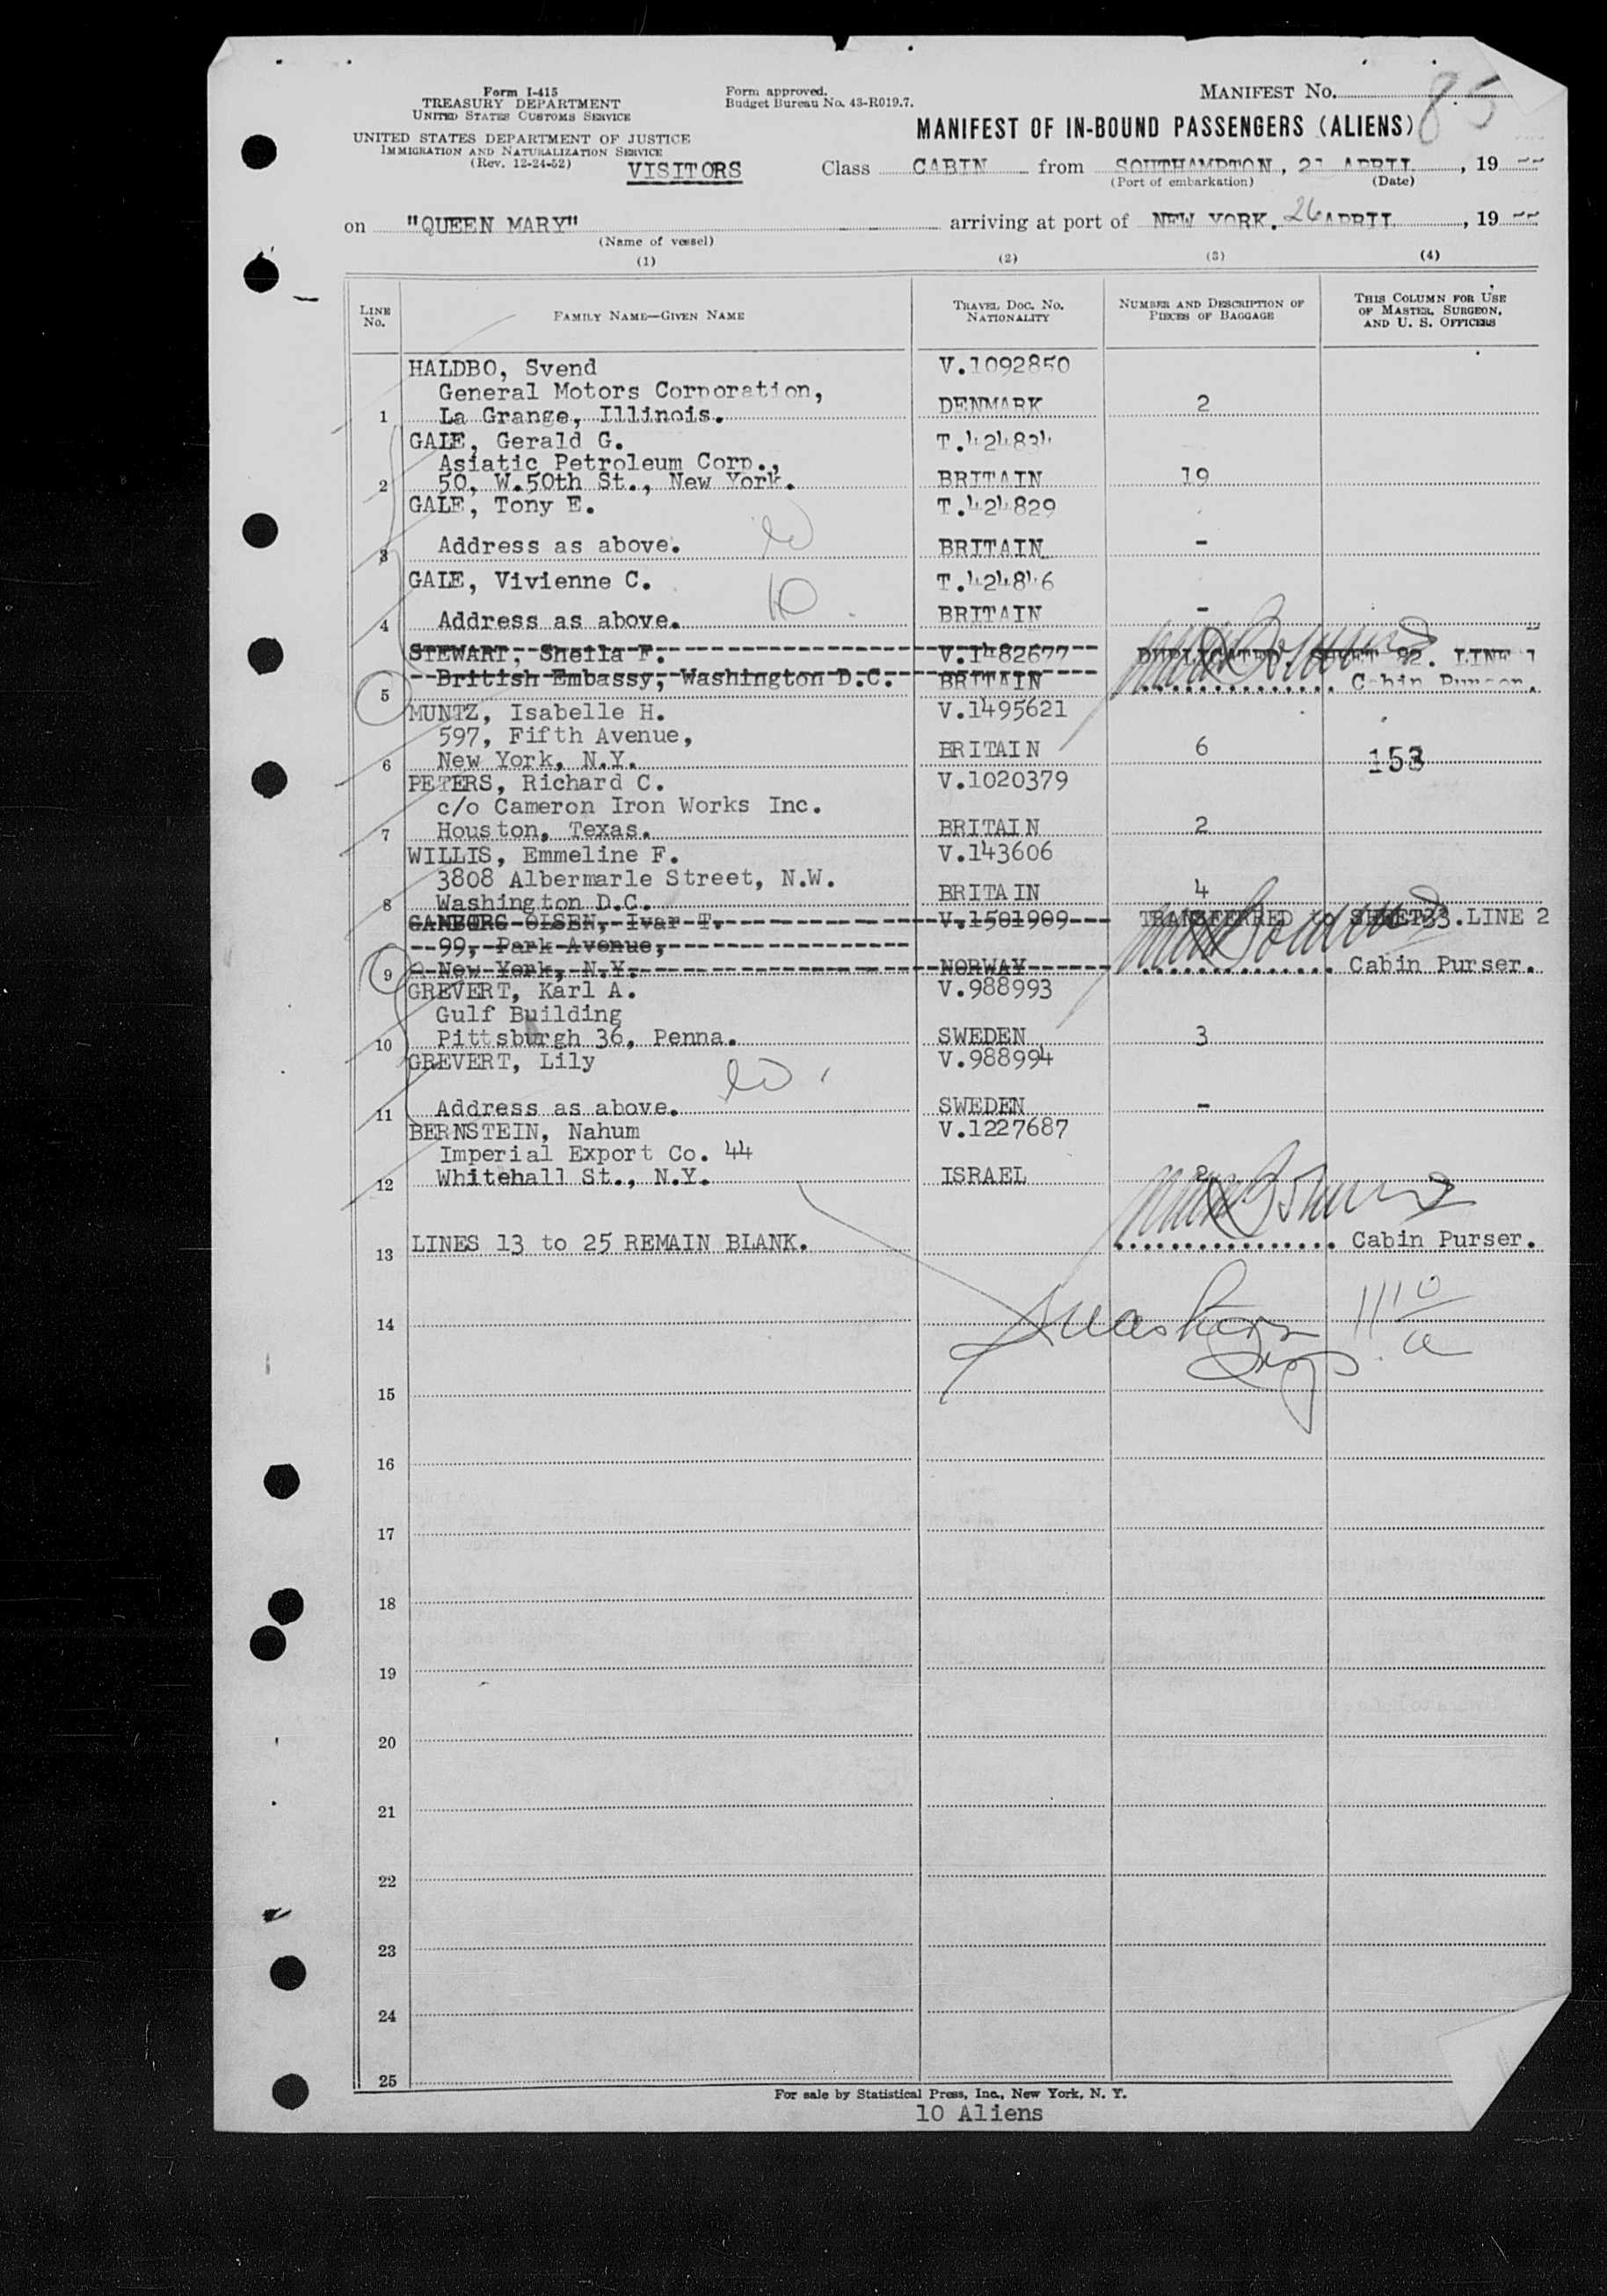 Form I-415
TREASURY DEPARTMENT
UNITED STATES CUSTOMS SERVICE
UNITED STATES DEPARTMENT OF JUSTICE
IMMIGRATION AND NATURALIZATION SERVICE
(Rev. 12-24-52)
VISITORS
Form approved.
Budget Bureau No. 43-R019.7.
MANIFEST No. 85
MANIFEST OF IN-BOUND PASSENGERS (ALIENS)
Class CABIN from SOUTHAMPTON, 21 APRIL, 19
(Port of embarkation) (Date)
on "QUEEN MARY" arriving at port of NEW YORK, 26 APRIL, 19
(Name of vessel)
(1) (2) (3) (4)
LINE No. FAMILY NAME—GIVEN NAME TRAVEL DOC. No. NATIONALITY NUMBER AND DESCRIPTION OF PIECES OF BAGGAGE THIS COLUMN FOR USE OF MASTER, SURGEON, AND U. S. OFFICERS
HALDBO, Svend V.1092850
General Motors Corporation,
1 La Grange, Illinois. DENMARK 2
GALE, Gerald G. T.424834
Asiatic Petroleum Corp.,
2 50, W.50th St., New York. BRITAIN 19
GALE, Tony E. T.424829
3 Address as above. BRITAIN -
GALE, Vivienne C. T.424846
4 Address as above. BRITAIN -
STEWART, Sheila F. V.1482677 DUPLICATED. SHEET 92. LINE 1
5 British Embassy, Washington D.C. BRITAIN Cabin Purser.
MUNTZ, Isabelle H. V.1495621
597, Fifth Avenue,
6 New York, N.Y. BRITAIN 6 153
PETERS, Richard C. V.1020379
c/o Cameron Iron Works Inc.
7 Houston, Texas. BRITAIN 2
WILLIS, Emmeline F. V.143606
3808 Albermarle Street, N.W.
8 Washington D.C. BRITAIN 4
GAMBORG OLSEN, Ivar T. V.1501909 TRANSFERRED to SHEET 33. LINE 2
99, Park Avenue,
9 New York, N.Y. NORWAY Cabin Purser.
GREVERT, Karl A. V.988993
Gulf Building
10 Pittsburgh 36, Penna. SWEDEN 3
GREVERT, Lily V.988994
11 Address as above. SWEDEN -
BERNSTEIN, Nahum V.1227687
Imperial Export Co. 44
12 Whitehall St., N.Y. ISRAEL 2
13 LINES 13 to 25 REMAIN BLANK. Cabin Purser.
14
15
16
17
18
19
20
21
22
23
24
25
For sale by Statistical Press, Inc., New York, N. Y.
10 Aliens